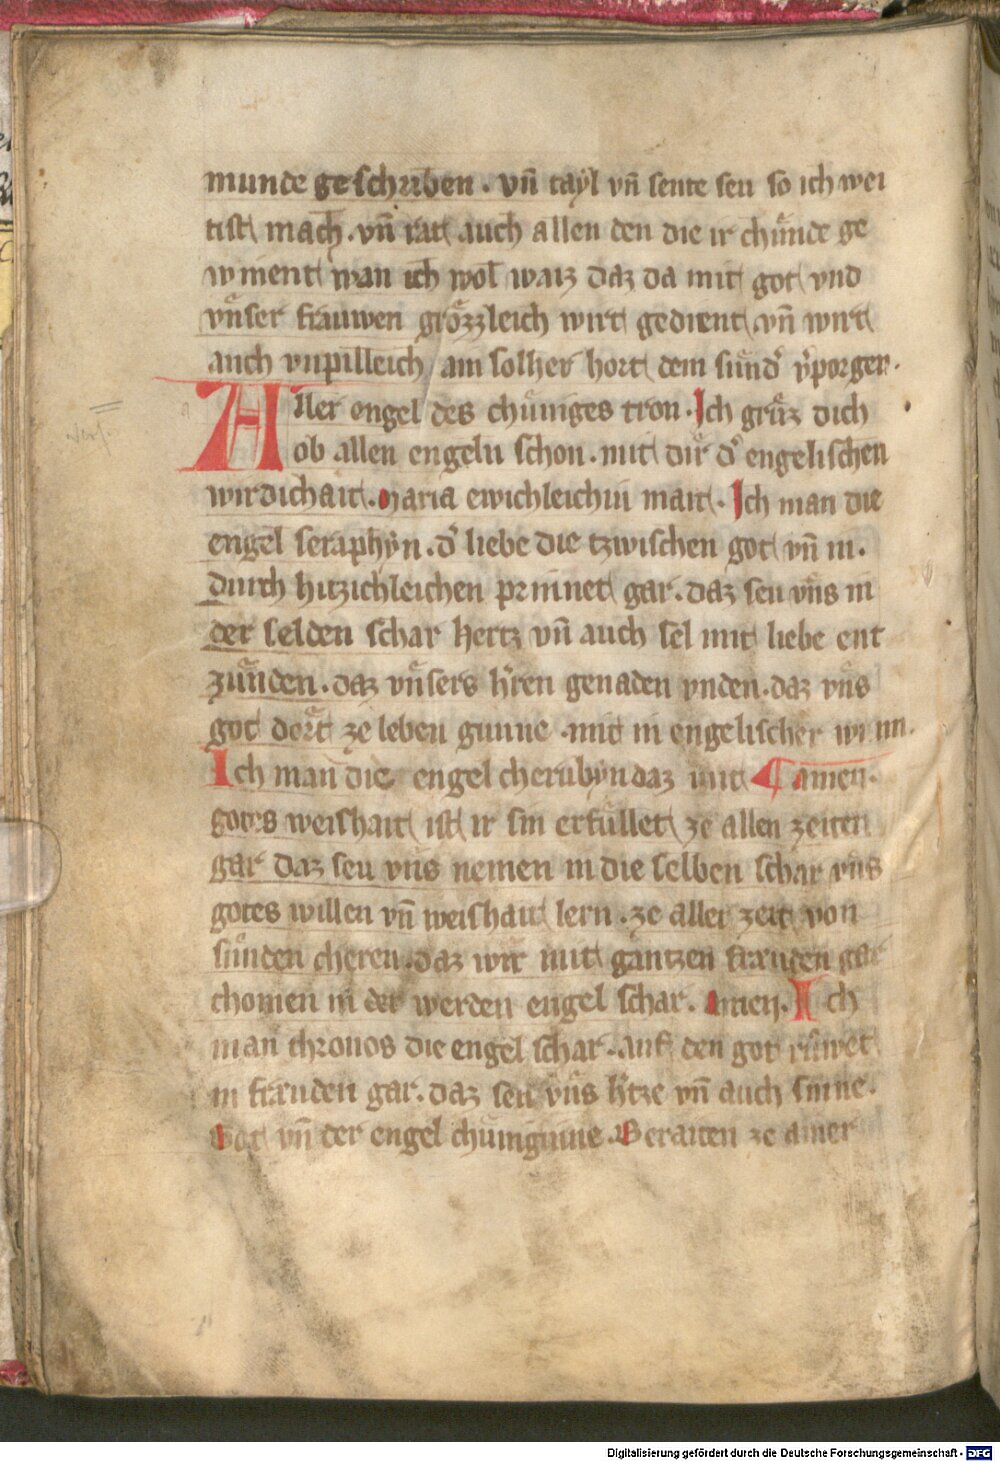 munde geschriben . vn̄ tayl vn̄ sente seu so ich wei
tist mach . vn̄ rat auch allen den die ir chu̍nde ge
winent wan ich wol waiz daz da mit got vnd
vnser frauwen grozzleich wirt gedient vn̄ wirt
auch vnpilleich ain solher hort dem sund' v'porgen .
Aller engel des chuniges tron . Ich gruz dich
ob allen engeln schon . mit dir d' engelischen
wirdichait . maria ewichleichiu mait . Ich man die
engel seraphyn . d' liebe die tzwischen got vn̄ in .
durch hitzichleichen prinnet gar . daz seu vns in
der selden schar hertz vn̄ auch sel mit liebe ent
zunden . daz vnsers h'ren genaden vnden . daz vns
got dort ze leben gunne . mit in engelischer wunn .
Ich man die engel cherubyn daz mit ¶ amen .
gotes weishait ist ir sin erfullet ze allen zeiten
gar daz seu vns nemen in die selben schar vns
gotes willen vn̄ weishait lern . ze aller zeit von
sunden cheren . daz wir mit gantzen frauden gar
chomen in der werden engel schar . amen . Ich
man thronos die engel schar . auf den got ruwet
in frauden gar . daz seu vns h'tze vn̄ auch sinne .
Got vn̄ der engel chuniginne . Beraiten ze ainer
Digitalisierung gefördert durch die Deutsche Forschungsgemeinschaft - DFG